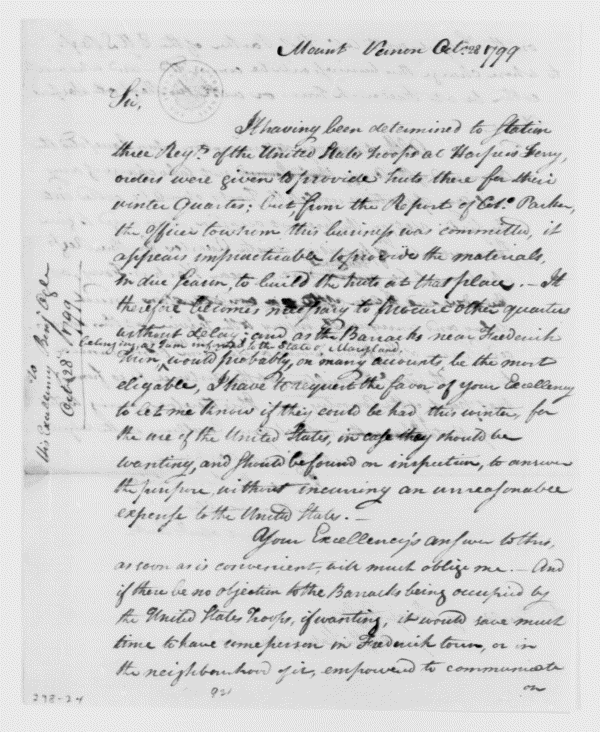 Mount Vernon Octr. 28 1799
Sir,
It having been determined to Station
three Regts. of the United States Troops at Harpers Ferry,
orders were given to provide huts there for their
winter Quarters; but, from the Report of Colo. Parker,
the officer to whom this business was committed, it
appears impracticable to provide the materials,
in due season, to build the huts at that place. — It
therefore becomes necessary to procure other quarters
without delay; and as the Barracks near Frederick
belonging, as I am informed to the State of Maryland,
Town, would probably, on many accounts, be the most
eligable, I have to request the favor of your Excellency
to let me know if they could be had this winter, for
the use of the United States, in case they should be
wanting, and should be found on inspection, to answer
the purpose, without incurring an unreasonable
expense to the United States. —
Your Excellency's answer to this,
as soon as is convenient, will much oblige me. — And
if there be no objection to the Barracks being occupied by
the United States Troops, if wanting, it would save much
time to have some person in Frederick town, or in
the neighbourhood of it, empowered to communicate
on
To
His Excellency Benj. Ogle
Oct. 28. 1799
298-24